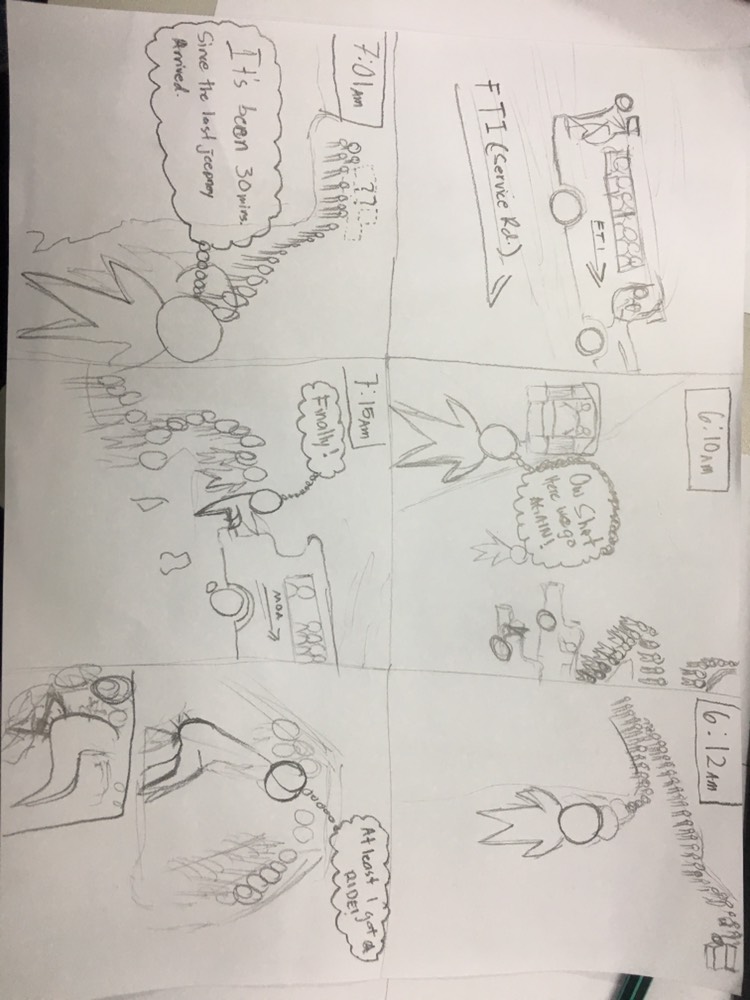 FTI
FTI (Service Rd.)
6:10 AM
Ow Shet
Here we go
AGAIN!
6:12 AM
7:01 AM
??
It's been 30 mins.
Since the last jeepney
Arrived.
7:15 AM
Finally!
MOA
At least I got a
RIDE!